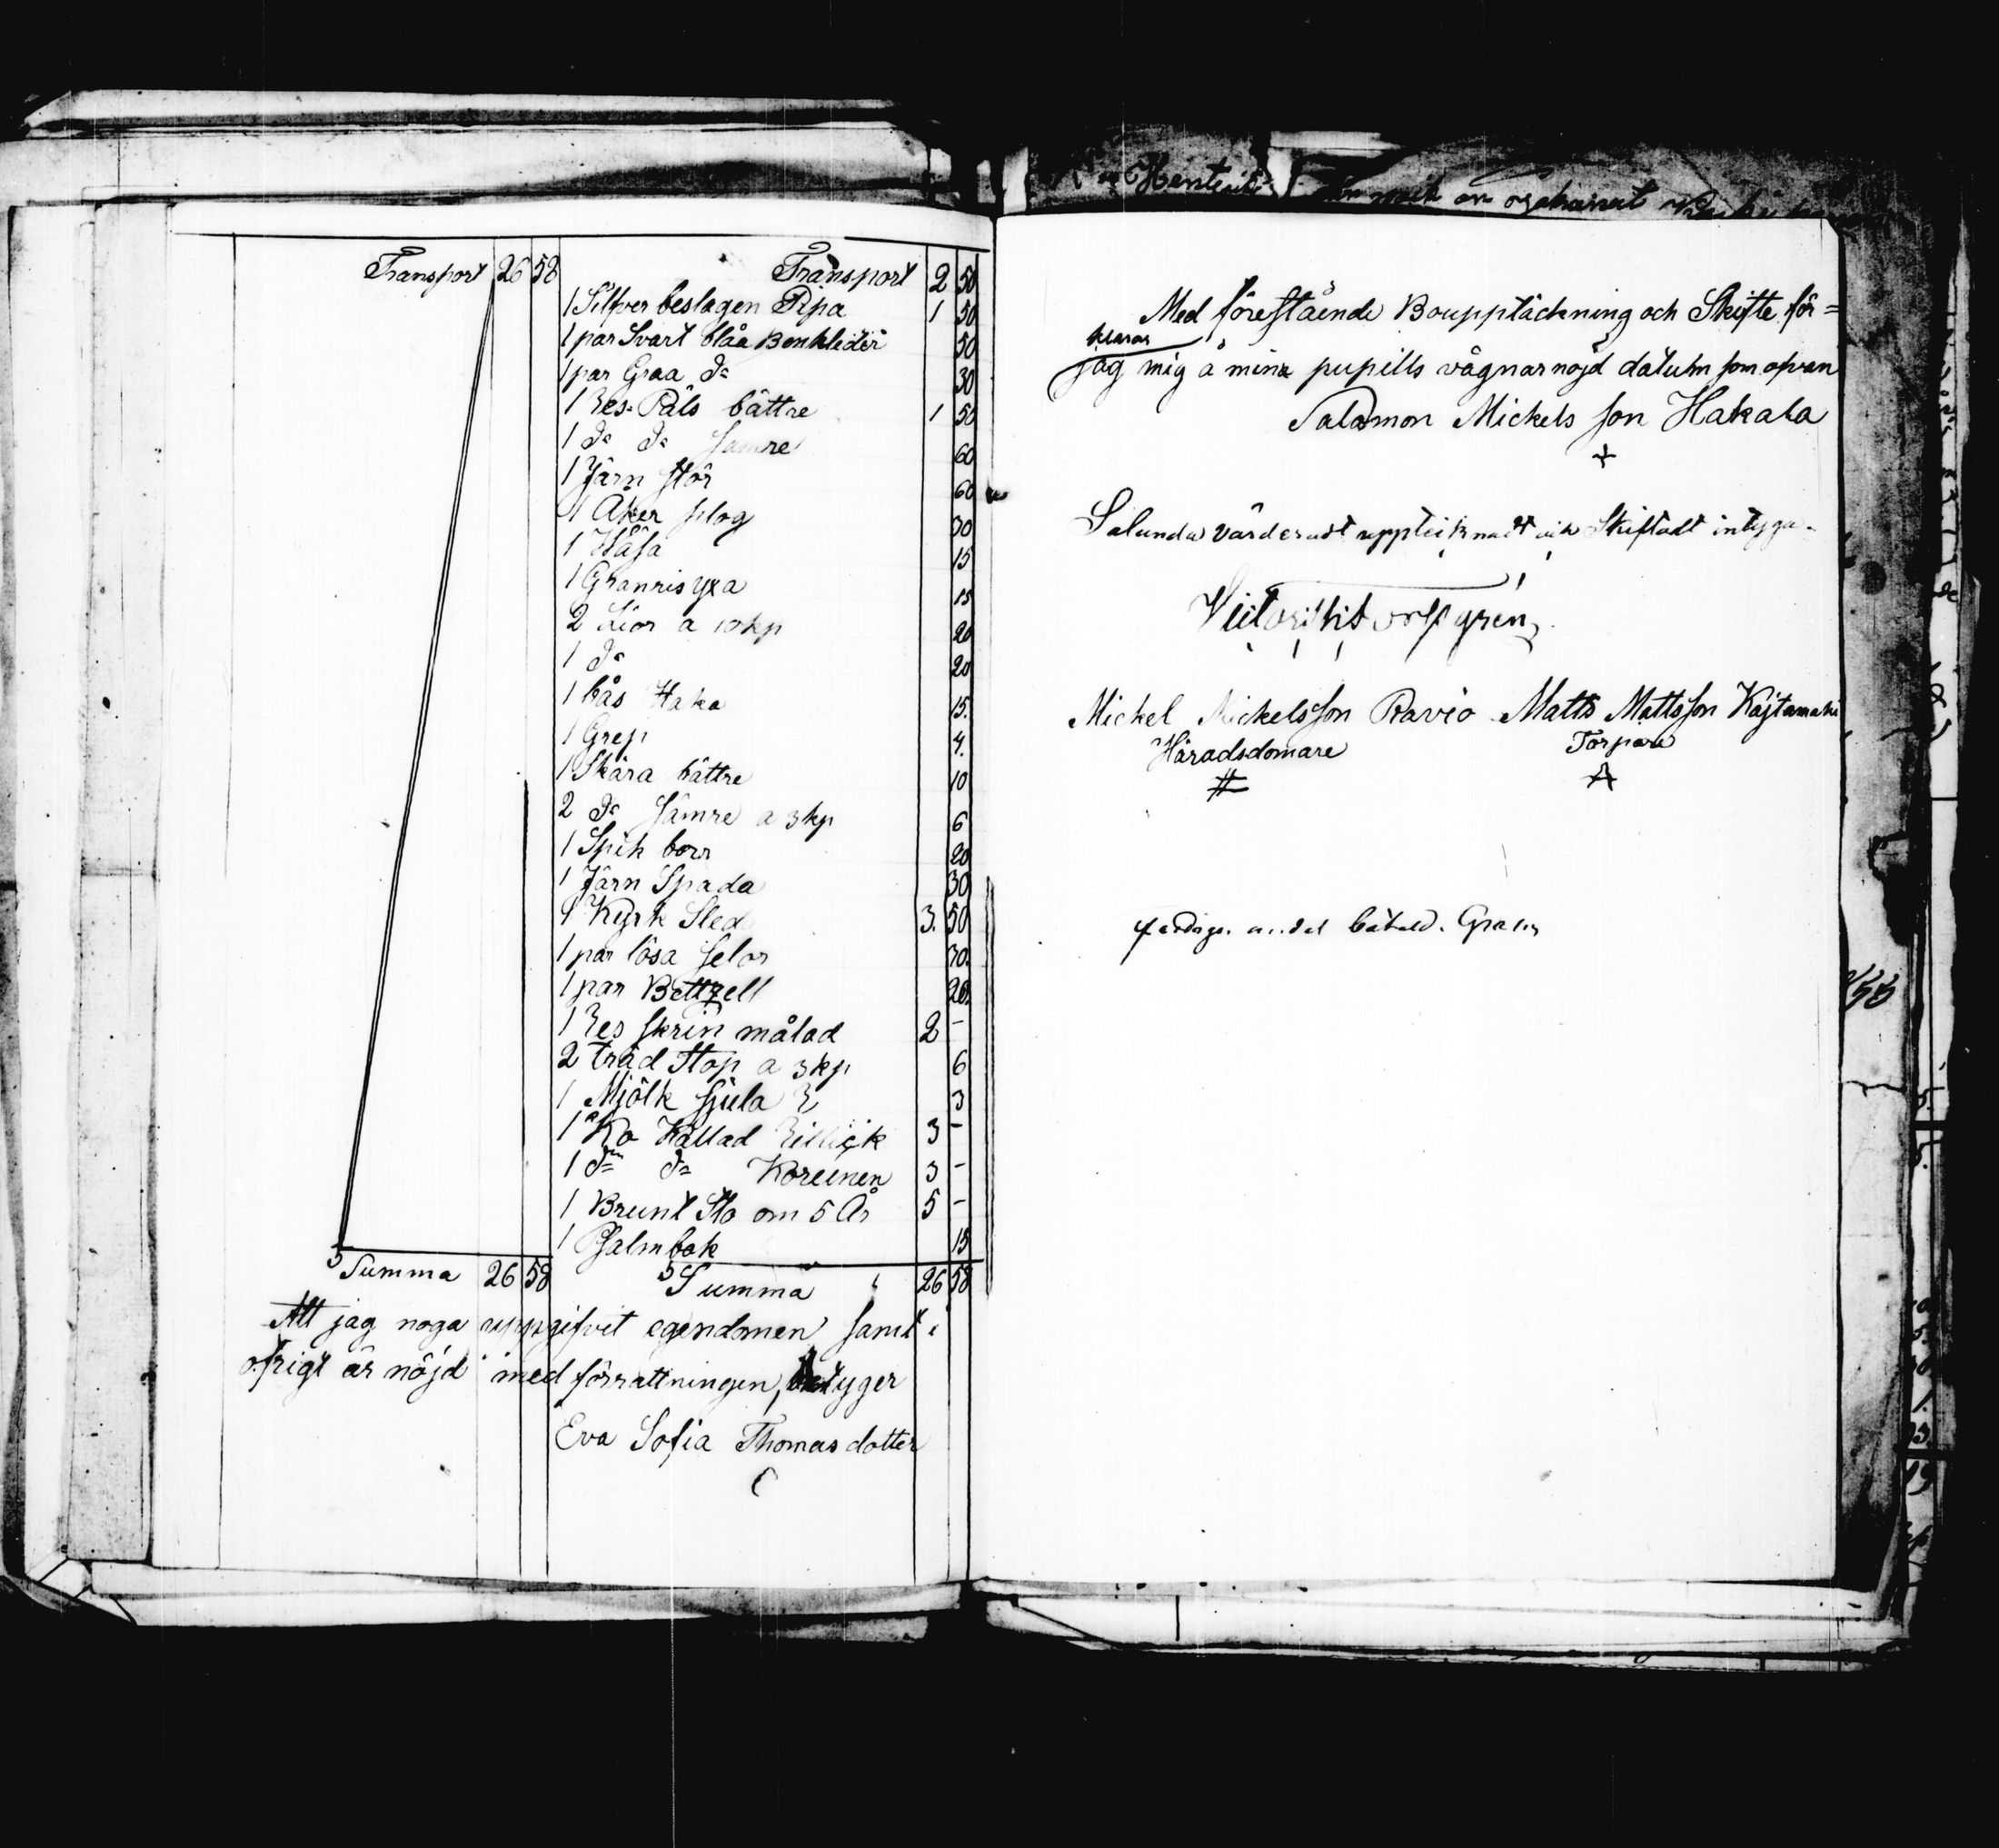 Transport 26 58
Transport 2 50
1 Silfver beslagen Pipa 1 50
1 par Svart blåa Benkleder 50
1 par Graa do 30
1 Res Päls bättre 1 50
1 do do sämre 60
1 Järn stör 60
1 Åker plog 30
1 15
1 Granris yxa 15
2 Lior a 10 kp 20
1 do 20
1 bås Haka 15.
1 Grep 4.
1 Skära bättre 10
2 do sämre a 3 kp 6
1 Spik borr 20
1 Järn Spada 30
1 Kyrk Sled 3. 50
1 par lösa selor 30.
1 par Bettzell 20.
1 Res skrin målad 2 -
2 träd stop a 3 kp 6
1 Mjölk 3
1 Ko Kallad 3 -
1 dn do Koreinen 3 -
1 Brunt Sto om 5 År 5 -
1 Psalmbok 15
Summa 26 58
Summa 26 58
Att jag noga uppgifvit egendomen samt i
öfrigt är nöjd med förrättningen, betyger
Eva Sofia Thomas dotter
Med föreståendе Bouppläckning och Skifte för=
klarar
jag mig å mina pupills vägnar nöjd datum som ofvan
Salomon Mickels son Hakala
Salunda värderadt uppteiknadt och Skiftadt intyga.
Mickel Mickelsson Ravio Matts Mattsson Kajtamaki
Häradsdomare Torpare